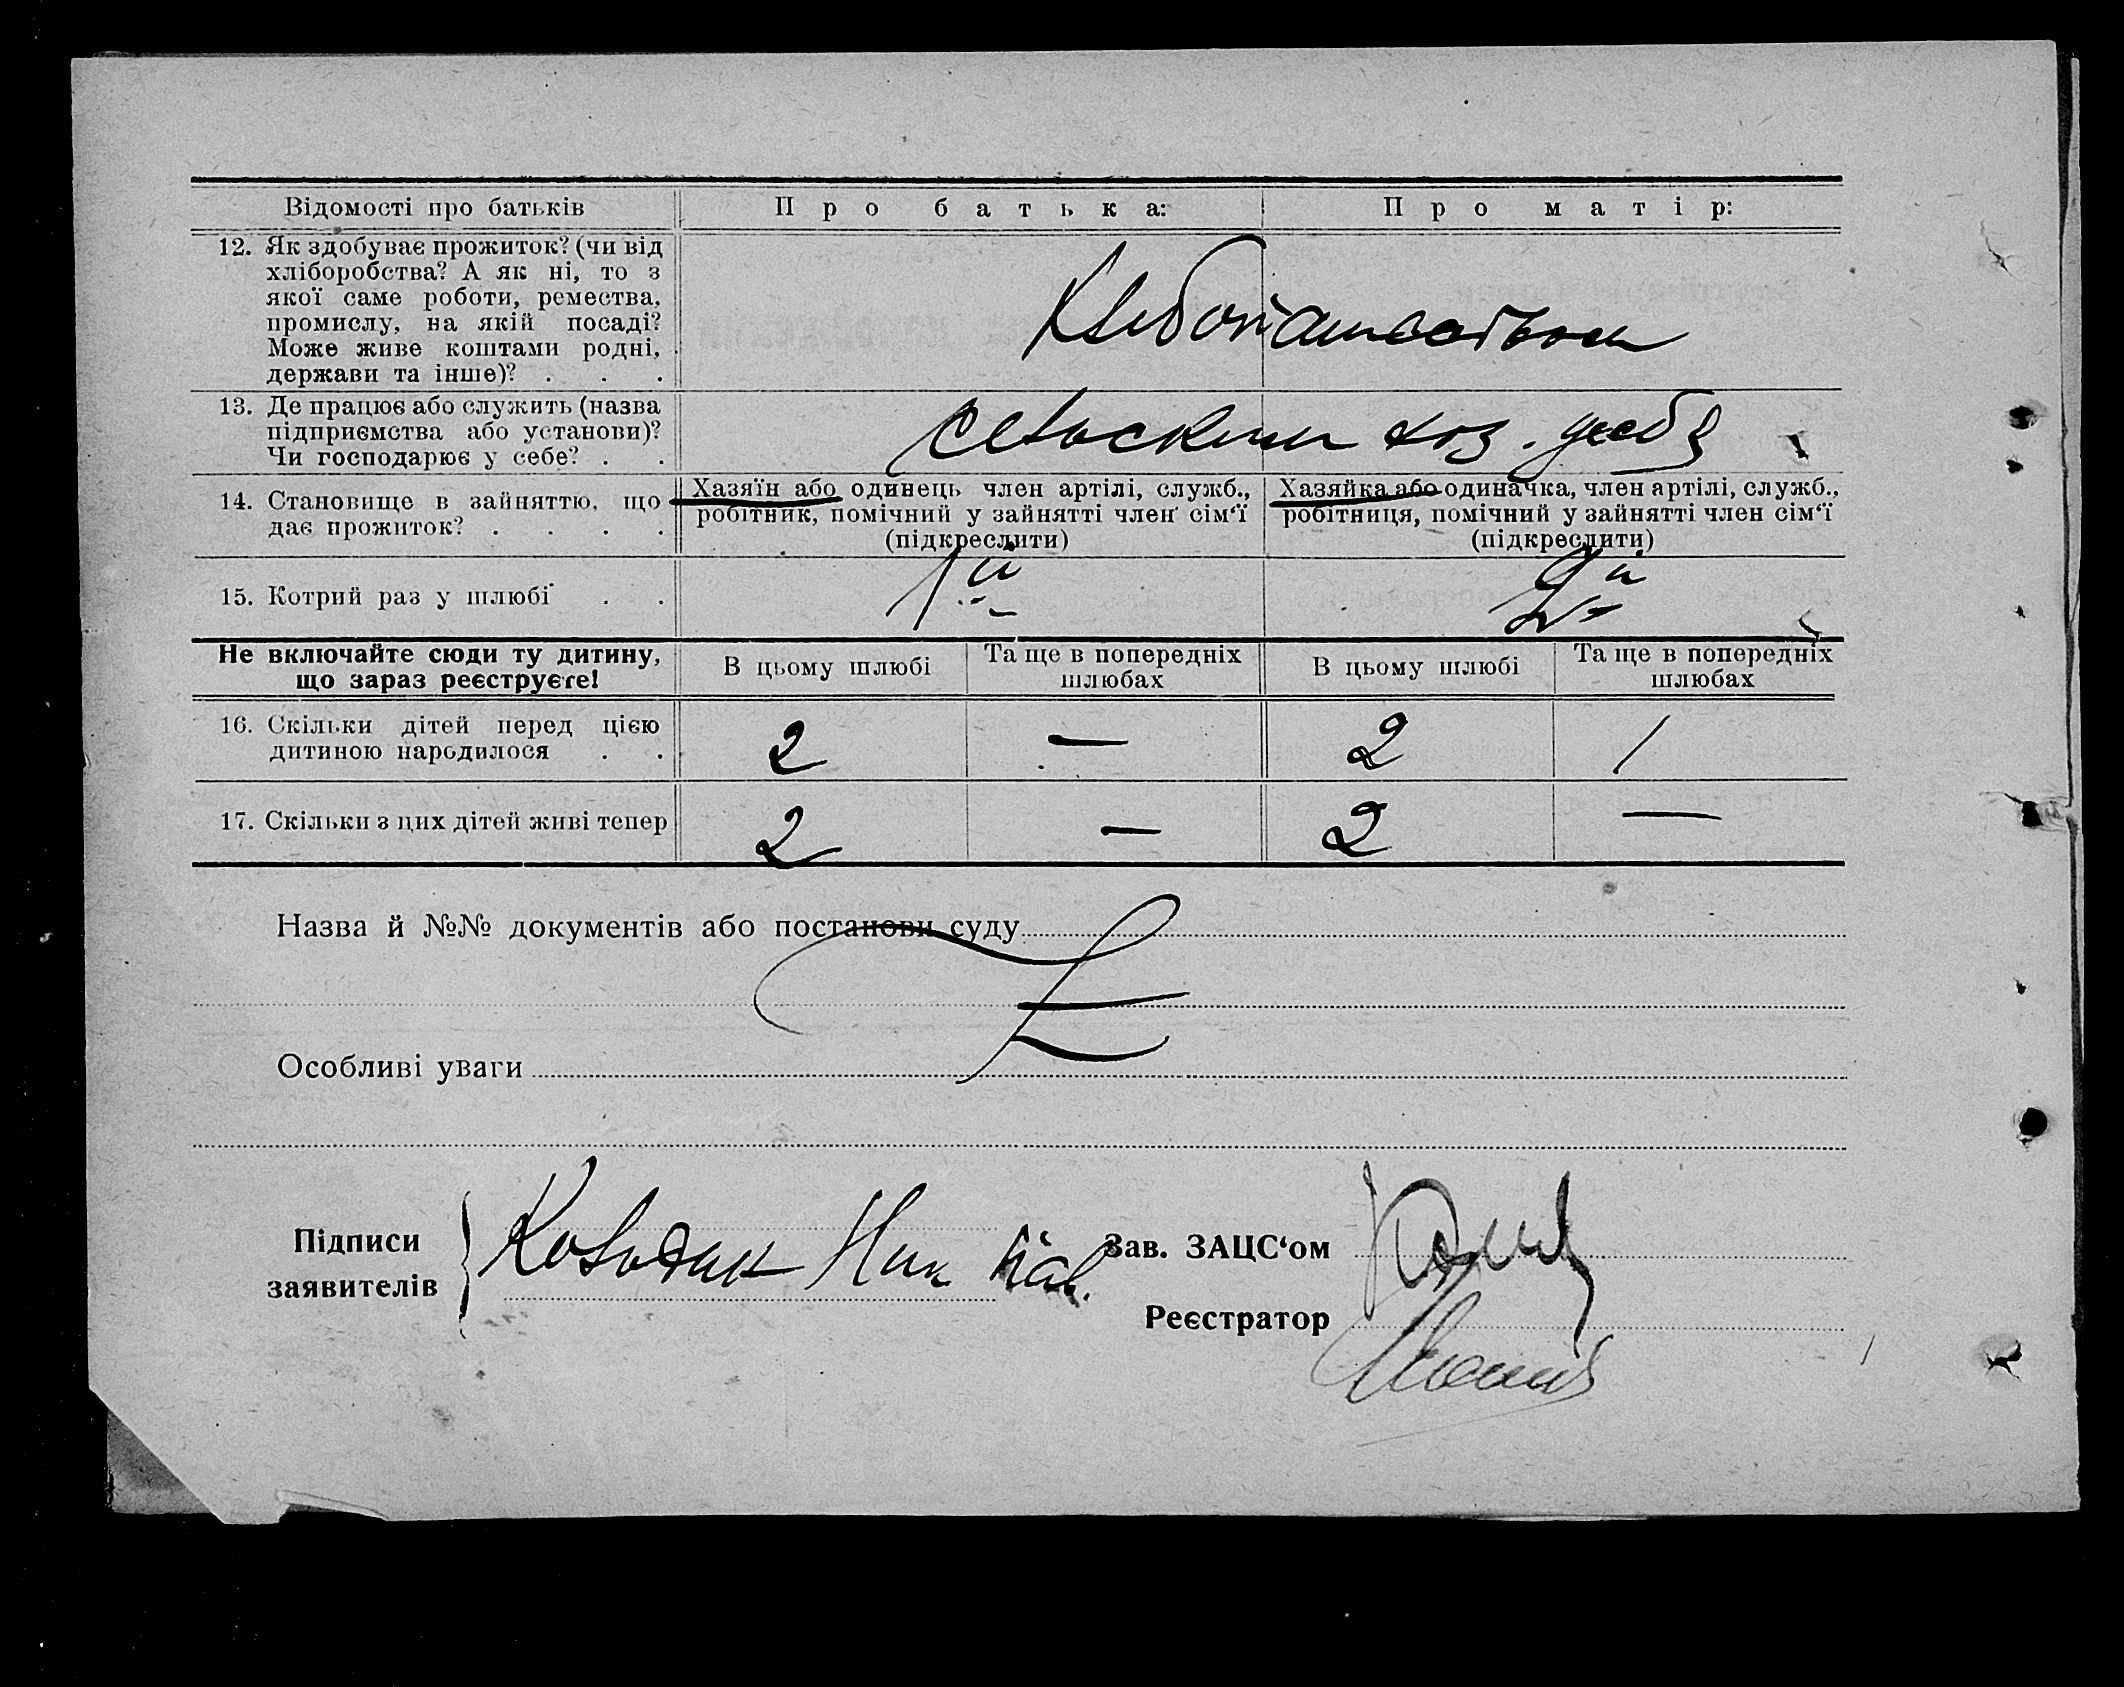 Відомості про батьків Про батька: Про матір:
12. Як здобуває прожиток? (чи від
хліборобства? А як ні, то з
якої саме роботи, ремества,
промислу, на якій посаді?
Може живе коштами родні,
держави та інше)? . . .
Хлебопашеством
13. Де працює або служить (назва
підприємства або установи)?
Чи господарює у себе? . .
сельским хоз. у себя
14. Становище в зайняттю, що
дає прожиток? . . . .
Хазяїн або одинець член артілі, служб.,
робітник, помічний у зайнятті член сім'ї
(підкреслити)
Хазяйка або одиначка, член артілі, служб.,
робітниця, помічний у зайнятті член сім'ї
(підкреслити)
15. Котрий раз у шлюбі . . 1й 2й
Не включайте сюди ту дитину,
що зараз реєструєте!
В цьому шлюбі
Та ще в попередніх
шлюбах
В цьому шлюбі
Та ще в попередніх
шлюбах
16. Скільки дітей перед цією
дитиною народилося . .
2 — 2 1
17. Скільки з цих дітей живі тепер 2 — 2 —
Назва й №№ документів або постанови суду
Особливі уваги
Підписи
заявителів
Ник Пав.
Зав. ЗАЦС'ом
Реєстратор